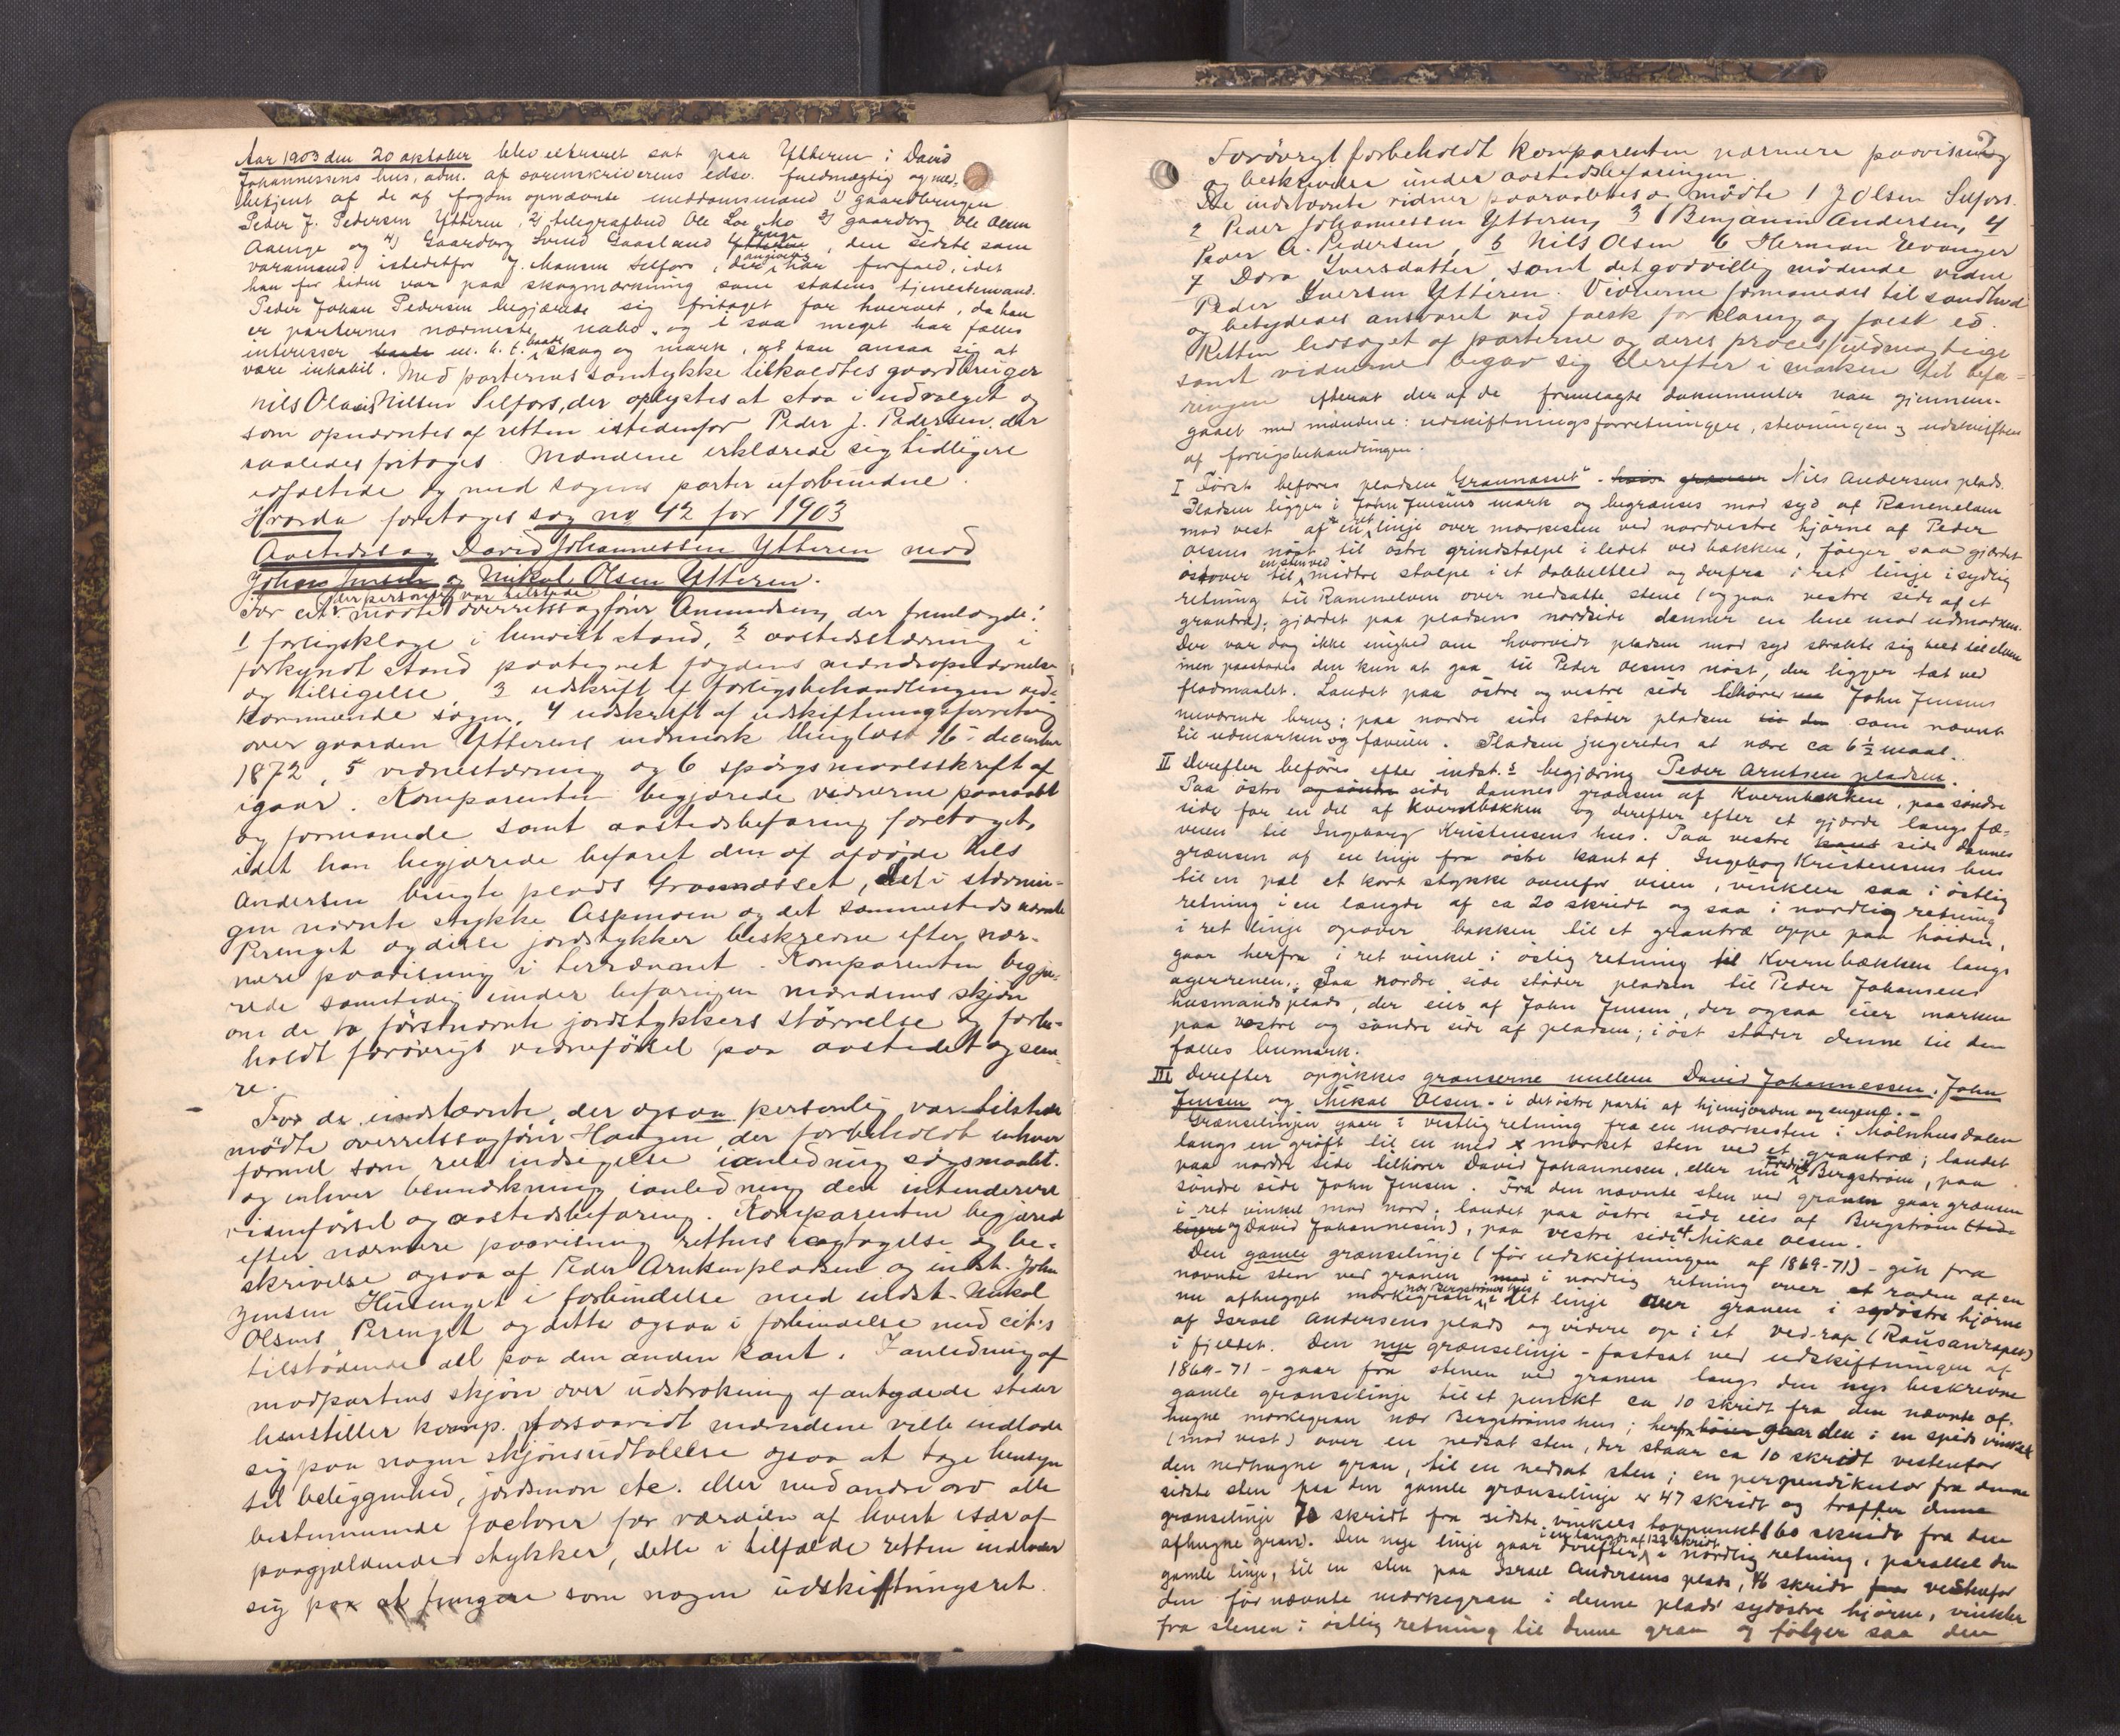 Aar 1903 den 20 oktober blev extraret sat paa Ytteren i David
Johannessens hus, adm. af sorenskriverens edsv. fuldmægtig og med-
betjent af de af fogden opnævnte meddomsmænd 1) gaardbruger
Peder J. Pedersen Ytteren, 2) telegrafbud Ole Loe, Mo 3) gaardbrg. Ole Olsen
Aaenge og 4) Gaardbrg Svend Gaasland, den sidste som
varamand istedetfor J. Monsen Selfors, der angivelig har forfald, idet
han for tiden var paa skogmærkning som statens tjenestemand.
Peder Johan Pedersen begjærede sig fritaget for hvervet, da han
er parternes nærmeste nabo og i saa meget har fælles
interesser m. h. t. baade skog og mark, at han ansaa sig at
være inhabil. Med parternes samtykke tilkaldtes gaardbruger
Nils Olausius Nilsen Selfors, der oplystes at staa i udvalget og
som opnævntes af retten istedenfor Peder J. Pedersen, der
saaledes fritoges. Mændene erklærede sig tidligere
edfæstede og med sagens parter uforbundne.
Hvorda foretoges sag no 42 for 1903
Aastedssag David Johannessen Ytteren mod
Johan Jensen og Mikal Olsen Ytteren.
For cit. der personlig var tilstede mødte overretssagfører Amundsen, der fremlagde:
1 forligsklage i henvist stand, 2 aastedsstævning i
forkyndt stand paategnet fogdens mændsopnævnelse
og tilsigelse, 3 udskrift af forligsbehandlingen ved-
kommende sagen, 4 udskrift af udskiftningsforretning
over gaarden Ytterens indmark thinglæst 16 december
1872, 5 vidnestævning og 6 spørgsmaalsskrift af
igaar. Komparenten begjærede vidnerne paaraabt
og formanede samt aastedsbefaring foretaget,
idet han begjærede befaret den af afdøde Nils
Andersen brugte plads Grannæsset, det i stævnin-
gen nævnte stykke Aspmoen og det sammesteds nævnte
Perenget og disse jordstykker beskrevne efter nær-
mere paavisning i terrænet. Komparenten begjæ-
rede samtidig under befaringen mændenes skjøn
om de to førstnævnte jordstykkers størrelse og forbe-
holdt forøvrigt vidneførsel paa aastedet og sene-
re.
For de indstævnte, der ogsaa personlig var tilstede
mødte overretssagfører Haugen, der forbeholdt enhver
formel som reel indsigelse i anledning søgsmaalet
og enhver bemærkning i anledning den intenderede
vidneførsel og aastedsbefaring. Komparenten begjæred
efter nærmere paavisning rettens iagtagelse og be-
skrivelse ogsaa af Peder Arntsenpladsen og indst. John
Jensen Husenget i forbindelse med indst. Mikal
Olsens Perenget og dette ogsaa i forbindelse med cit.s
tilstødende del paa den anden kant. I anledning af
modpartens skjøn over udstrækning af antydede steder
henstiller komp. forsaavidt mændene ville indlade
sig paa nogen skjønsudtalelse ogsaa at tage hensyn
til beliggenhed, jordsmon etc. eller med andre ord alle
bestemmende factorer for værdien af hvert især af
paagjældende stykker, dette i tilfælde retten indlader
sig paa at fungere som nogen udskiftningsret.
2
Forøvrigt forbeholdt komparenten nærmere paavisning
og beskrivelse under aastedsbefaringen.
De indstævnte vidner paaraabtes og mødte 1 J Olsen Selfors
2 Peder Johannessen Ytteren, 3 Benjamin Andersen, 4
Peder A. Pedersen, 5 Nils Olsen 6 Herman Evanger
7 Dora Iversdatter samt det godvillig mødende vidne
Peder Iversen Ytteren. Vidnerne formanedes til sandhed
og betydedes ansvaret ved falsk forklaring og falsk ed.
Retten ledsaget af parterne og deres procesfuldmægtige
samt vidnerne begav sig derefter i marken til befa-
ringen efterat der af de fremlagte dokumenter var gjennem-
gaaet med mændene: udskiftningsforretningen, stevningen og udskriften
af forligsbehandlingen.
I Først befores pladsen "Grannæsset" - Nils Andersens plads.
Pladsen ligger i John Jensens mark og begrænses mod syd af Ranenelven
mod vest af en ret linje over merkesten ved nordvestre hjørne af Peder
Olsens nøst til østre grindstolpe i ledet ved bakken, følger saa gjærdet
østover til en sten ved midtre stolpe i et dobbeltled og derfra i ret linje i sydlig
retning til Ranenelven over nedsatte stene (og paa vestre side af et
grantræ); gjærdet paa pladsens nordside danner en line mod udmarken.
Der var dog ikke enighed om hvorvidt pladsen mod syd strakte sig helt til elven
men paastodes den kun at gaa til Peder Olsens nøst, der ligger tæt ved
flodmaalet. Landet paa østre og vestre side tilhører John Jensens
nuværende brug; paa nordre side støder pladsen som nævnt
til udmarken og fæveien. Pladsen jugeredes at være ca 6 1/2 maal.
II Derefter beføres efter indst.s begjæring Peder Arntsen pladsen.
Paa østre side dannes grænsen af Kvernbækken, paa søndre
side for en del af Kvernbækken og derefter efter et gjærde langs fæ-
veien til Ingeborg Kristensens hus. Paa vestre side dannes
grænsen af en linje fra østre kant af Ingeborg Kristensens hus
til en pæl et kort stykke ovenfor veien, vinkler saa i østlig
retning i en længde af ca 20 skridt og saa i nordlig retning
i ret linje opover bakken til et grantræ oppe paa høiden,
gaar herfra i ret vinkel i østlig retning til Kvernbækken langs
agerrenen. Paa nordre side støder pladsen til Peder Johansens
husmandsplads, der eies af John Jensen, der ogsaa eier marken
paa vestre og søndre side af pladsen; i øst støder denne til den
fælles humark.
III Derefter opgikkes grænserne mellem David Johannessen, John
Jensen og Mikal Olsen - i det østre parti af hjemjorden og engene. -
Grænselinjen gaar i vestlig retning fra en mærkesten i Mølnhusdalen
langs en grøft til en med x mærket sten ved et grantræ; landet
paa nordre side tilhører David Johannesen, eller nu Fredrik Bergstrøm, paa
søndre side John Jensen. Fra den nævnte sten ved granen gaar grænsen
i ret vinkel mod nord; landet paa østre side eies af Bergstrøm
og David Johannesen), paa vestre side af Mikal Olsen.
Den gamle grænselinje (før udskiftningen af 1869-71) - gik fra
nævnte sten ved granen i nordlig retning over roden af en
nu afhugget merkegran nær Bergstrøms hus i ret linje over granen i sydøstre hjørne
af Israel Andersens plads og videre op i et ved-rap (Rausanrapet)
i fjeldet. Den nye grænselinje - fastsat ved udskiftningen af
1869-71 - gaar fra stenen ved granen langs den nys beskrevne
gamle grænselinje til et punkt ca 10 skridt fra den nævnte af-
hugne merkegran nær Bergstrøms hus; herfra gaar den i en spids vinkel
(mod vest) over en nedsat sten, der staar ca 10 skridt vestenfor
den nedhugne gran, til en nedsat sten; en perpendikulær fra denne
sidste sten paa den gamle grænselinje er 47 skridt og træffer denne
grænselinje 70 skridt fra sidste vinkels toppunkt (60 skridt fra den
afhugne gran). Den nye linje gaar derefter i en længde af 122 skridt i nordlig retning, parallel den
gamle linje, til en sten paa Israel Andersens plads, 46 skridt vestenfor
den før nævnte merkegran i denne plads' sydøstre hjørne, vinkler
fra stenen i østlig retning til denne gran og følger saa den